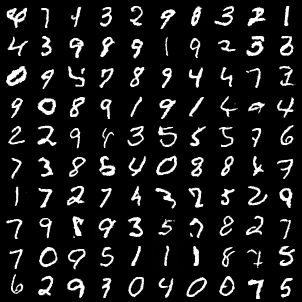 4 7 4 3 2 9 8 3 2 1
4 3 9 8 9 1 9 2 3 6
0 9 5 7 8 9 4 4 7 3
9 0 8 9 1 9 1 4 9 4
2 2 9 4 3 5 5 5 7 6
7 3 8 5 4 0 8 8 4 7
1 7 2 7 4 3 7 5 2 9
7 9 8 9 3 5 7 8 2 7
7 0 9 5 1 1 1 8 7 5
6 2 9 3 0 4 0 0 7 5